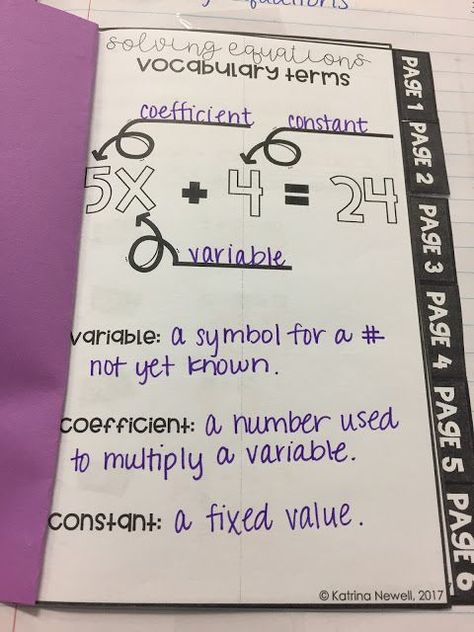 equations
solving equations
vocabulary terms
coefficient constant
5x + 4 = 24
variable
variable: a symbol for a #
not yet known.
coefficient: a number used
to multiply a variable.
constant: a fixed value.
© Katrina Newell, 2017
PAGE 1
PAGE 2
PAGE 3
PAGE 4
PAGE 5
PAGE 6